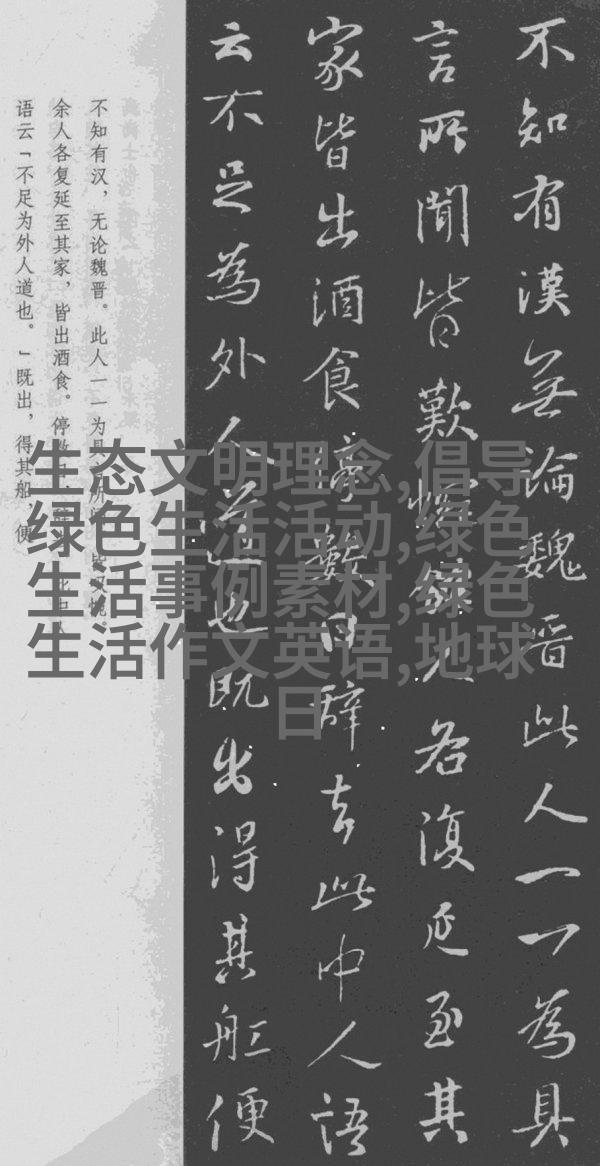 不知有漢無論魏晋此人一一為具
言所聞皆歎惋餘人各復延至其
家皆出酒食停數日辞去此中人語
云不足為外人道也既出得其船便
不知有汉，无论魏晋。此人一一为具
余人各复延至其家，皆出酒食。停数日
语云「不足为外人道也。」既出，得其船，便
生态文明理念,倡导
绿色生活活动,绿色
生活事例素材,绿色
生活作文英语,地球
日